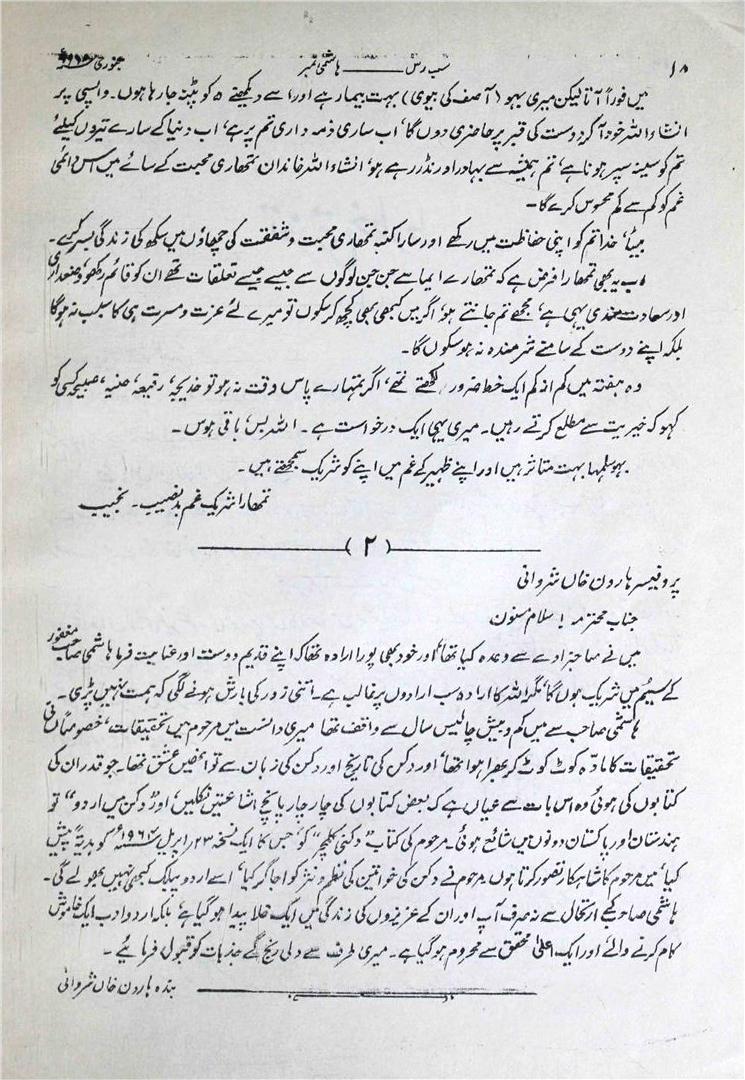 ۱۸ سب رس ـــــ ہاشمی نمبر جنوری
میں فوراً آتا لیکن میری بہو (آصف کی بیوی) بہت بیمار ہے اور اسے دیکھنے ۵ کو پٹنہ جا رہا ہوں۔ واپسی پر
انشاء اللہ خود آ کر دوست کی قبر پر حاضری دوں گا، اب ساری ذمہ داری تم پر ہے، اب دنیا کے سارے تیروں کیلئے
تم کو سینہ سپر ہونا ہے، تم ہمیشہ سے بہادر اور نڈر رہے ہو، انشاء اللہ خاندان تمھاری محبت کے سائے میں اس دائمی
غم کو کم سے کم محسوس کرے گا۔
بیٹا، خدا تم کو اپنی حفاظت میں رکھے اور سارا کنبہ تمھاری محبت و شفقت کی چھاؤں میں سکھ کی زندگی بسر کرے۔
اب یہ بھی تمھارا فرض ہے کہ تمھارے ابا سے جن جن لوگوں سے جیسے جیسے تعلقات تھے ان کو قائم رکھو، وضعداری
اور سعادت مندی یہی ہے، مجھے تم جانتے ہو، اگر میں کبھی بھی کچھ کر سکوں تو میرے لئے عزت و مسرت ہی کا سبب نہ ہوگا
بلکہ اپنے دوست کے سامنے شرمندہ نہ ہو سکوں گا۔
وہ ہفتہ میں کم از کم ایک خط ضرور لکھتے تھے، اگر تمہارے پاس وقت نہ ہو تو خدیجہ، رقیعہ، صفیہ، صبیحہ کسی کو
کہو کہ خیریت سے مطلع کرتے رہیں۔ میری یہی ایک درخواست ہے۔ اللہ بس، باقی ہوس۔
بہو سلمہا بہت متاثر ہیں اور اپنے ظہیر کے غم میں اپنے کو شریک سمجھتے ہیں۔
تمھارا شریک غم بدنصیب۔ نجیب
(۲)
پروفیسر ہارون خاں شروانی
جناب محترمہ! سلام مسنون
میں نے صاحبزادے سے وعدہ کیا تھا، اور خود بھی پورا ارادہ تھا کہ اپنے قدیم دوست اور عنایت فرما ہاشمی صاحب مغفور
کے سیوم میں شریک ہوں گا، مگر اللہ کا ارادہ سب ارادوں پر غالب ہے۔ اتنی زور کی بارش ہونے لگی کہ ہمت نہیں پڑی۔
ہاشمی صاحب سے میں کم و بیش چالیس سال سے واقف تھا میری دانست میں مرحوم میں تحقیقات، خصوصاً دکنی
تحقیقات کا مادّہ کوٹ کوٹ کر بھرا ہوا تھا، اور دکن کی تاریخ اور دکن کی زبان سے تو انھیں عشق تھا۔ جو قدر ان کی
کتابوں کی ہوئی وہ اس بات سے عیاں ہے کہ بعض کتابوں کی چار چار پانچ اشاعتیں نکلیں، اور "دکن میں اردو" تو
ہندستان اور پاکستان دونوں میں شائع ہوئی۔ مرحوم کی کتاب "دکنی کلچر" کو، جس کا ایک نسخہ ۲۳؍ اپریل ۱۹۶۴ء کو ہدیۃً پیش
کیا، میں مرحوم کا شاہکار تصور کرتا ہوں۔ مرحوم نے دکن کی خواتین کی نظم و نثر کو اجاگر کیا، اسے اردو پبلک کبھی نہیں بھولے گی۔
ہاشمی صاحب کے ارتحال سے نہ صرف آپ اور ان کے عزیزوں کی زندگی میں ایک خلا پیدا ہو گیا ہے بلکہ اردو ادب ایک خاموش
کام کرنے والے اور ایک اعلیٰ محقق سے محروم ہو گیا ہے۔ میری طرف سے دلی رنج کے جذبات کو قبول فرمائیے۔
بندہ ہارون خاں شروانی